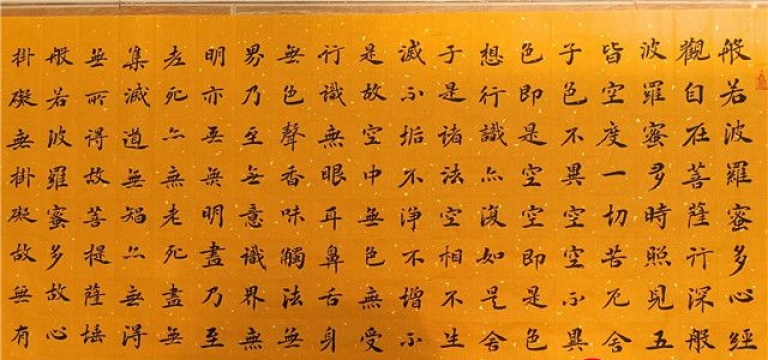 般若波羅蜜多心經
觀自在菩薩行深般
波羅蜜多時照見五
皆空度一切苦厄舍
子色不異空空不異
色即是空空即是色
想行識亦復如是舍
子是諸法空相不生
滅不垢不淨不增不
是故空中無色無受
行識無眼耳鼻舌身
無色聲香味觸法無
界乃至無意識界無
明亦無無明盡乃至
老死亦無老死盡無
集滅道無智亦無得
無所得故菩提薩埵
般若波羅蜜多故心
掛礙無掛礙故無有